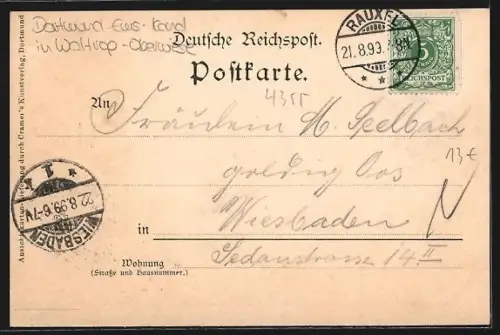 Dortmund-Ems-Kanal
in Waltrop-Oberwiese
Deutsche Reichspost.
Postkarte.
RAUXEL
21.8.99.
5
REICHSPOST
4355
An
Fräulein M. Seelbach
13€
in Wiesbaden
Sedanstrasse 14 II
Wohnung
(Straße und Hausnummer.)
WIESBADEN
22.8.99.6-7V.
1
Ansichtskarten-Abteilung durch Cramer's Kunstverlag, Dortmund